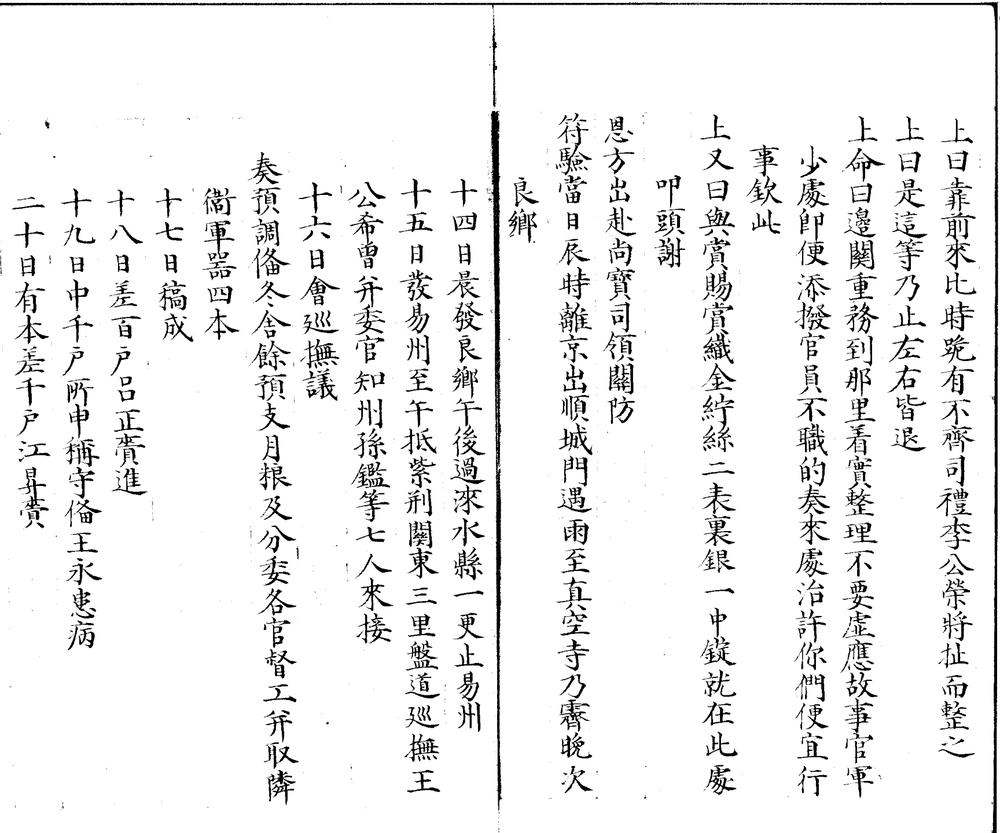 上曰靠前來比時跪有不齊司禮李公榮將扯而整之
上曰是這等乃止左右皆退
上命曰邊關重務到那里着實整理不要虛應故事官軍
少處即便添撥官員不職的奏來處治許你們便宜行
事欽此
上又曰與賞賜賞織金紵絲二表裏銀一中錠就在此處
叩頭謝
恩方出赴尚寶司領關防
符驗當日辰時離京出順城門遇雨至真空寺乃霽晚次
良鄉
十四日晨發良鄉午後過淶水縣一更止易州
十五日發易州至午抵紫荆關東三里盤道廵撫王
公希曾并委官知州孫鑑等七人來接
十六日會廵撫議
奏預調俻冬舍餘預支月粮及分委各官督工并取隣
衛軍器四本
十七日稿成
十八日差百户吕正賫進
十九日中千戶所申稱守俻王永患病
二十日有本差千戶江昇賫